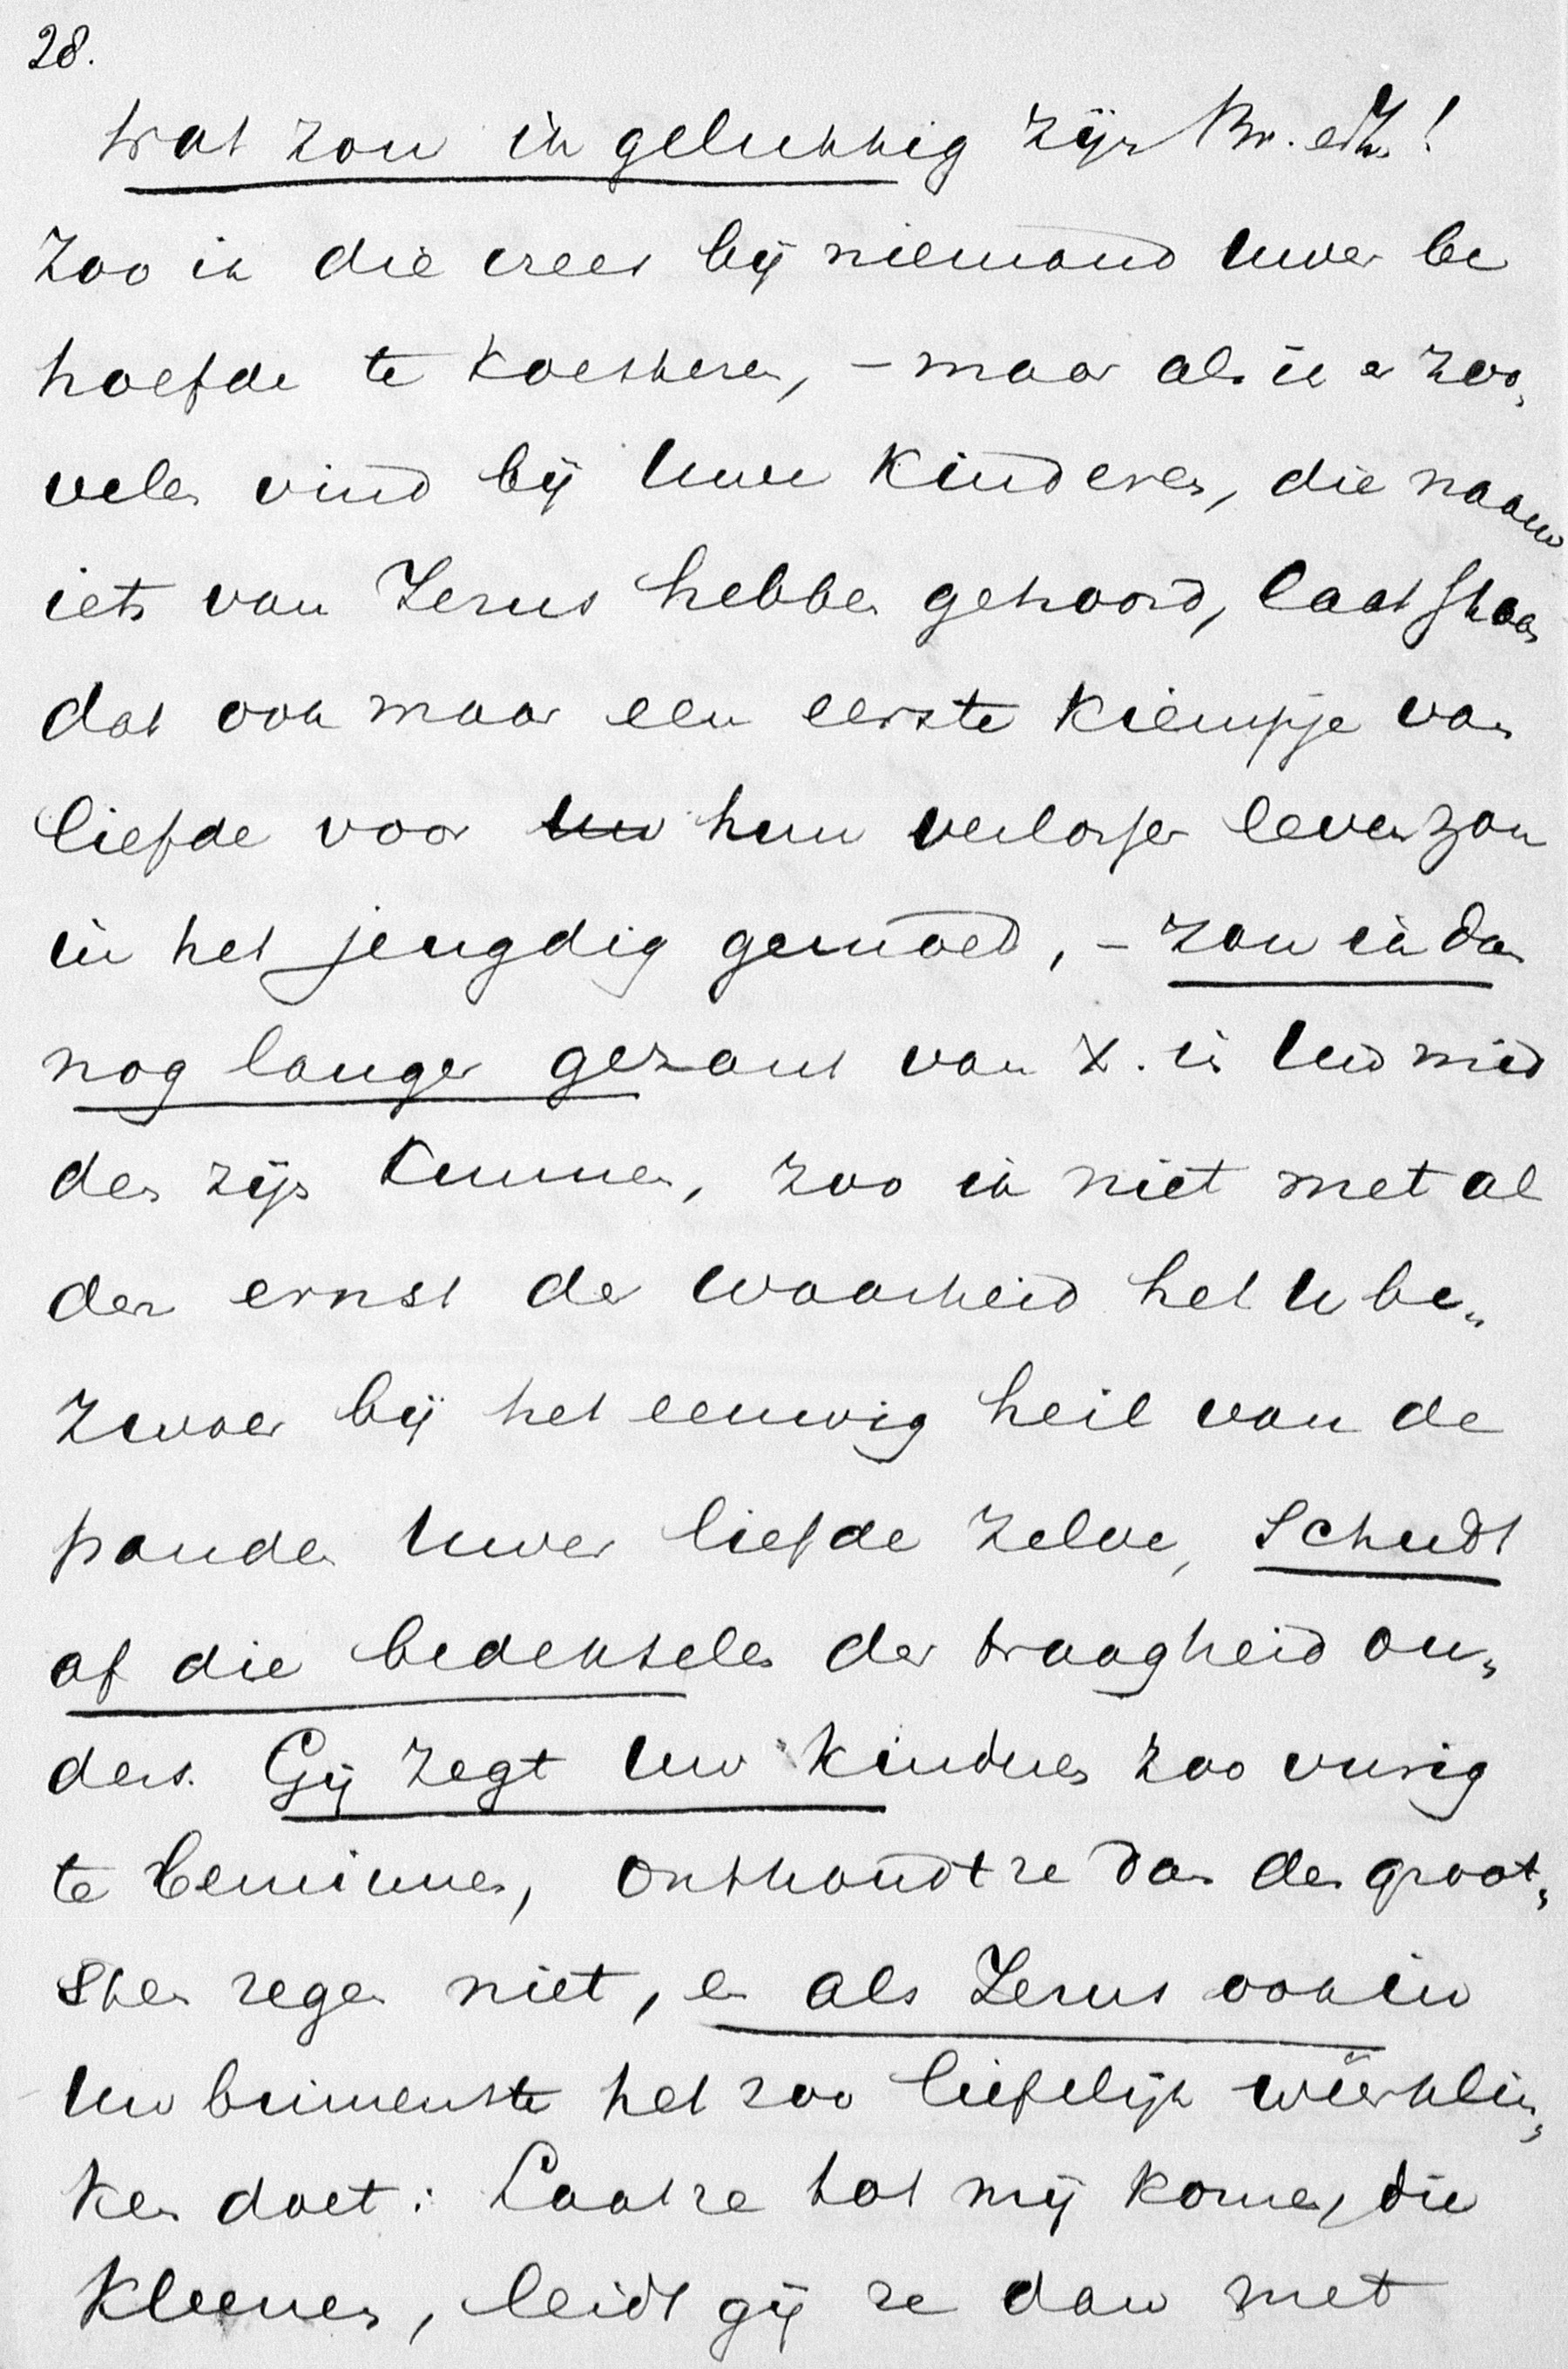 28.
Wat zou ik gelukkig zijn Br. en Z.!
Zoo ik die vrees bij niemand Uwer be
hoefde te koesteren, – maar als ik er zoo„
velen vind bij Uwe Kinderen, die naauw
iets van Jezus hebben gehoord, laat staan
dat ook maar een eerste kiempje van
liefde voor Uw hun verlosser leven zou
in het jeugdig gemoed, – zou ik dan
nog langer gezant van X. in Uw mid
den zijn kunnen, zoo ik niet met al
den ernst der waarheid het U be„
zwoer bij het eeuwig heil van de
panden Uwer liefde zelve, Schudt
af die bedekselen der traagheid ou„
ders. Gij zegt Uw kinderen zoo vurig
te beminnen, onthoudt ze dan den groot„
sten zegen niet, en als Jezus ook in
Uw binnenste het zoo liefelijk weerklin„
ken doet: Laat ze tot mij komen, die
Kleenen, leidt gij ze dan met